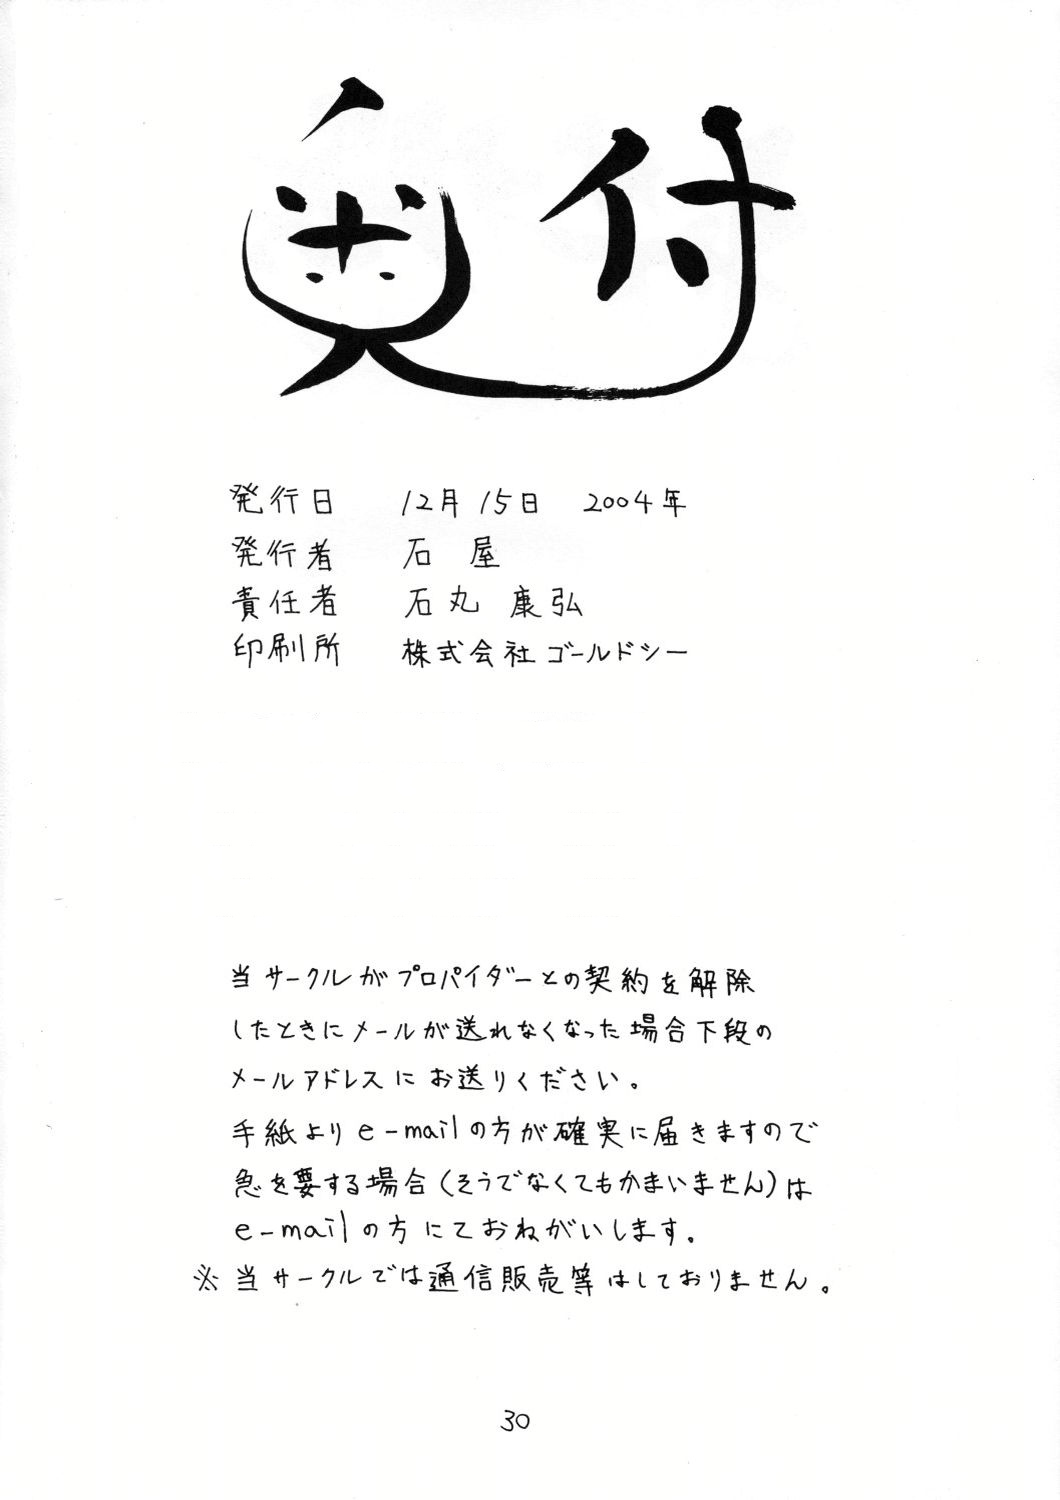 奥付
発行日 12月15日 2004年
発行者 石屋
責任者 石丸 康弘
印刷所 株式会社ゴールドシー
当サークルがプロパイダーとの契約を解除
したときにメールが送れなくなった場合下段の
メールアドレスにお送りください。
手紙よりe-mailの方が確実に届きますので
急を要する場合(そうでなくてもかまいません)は
e-mailの方にておねがいします。
※当サークルでは通信販売等はしておりません。
30